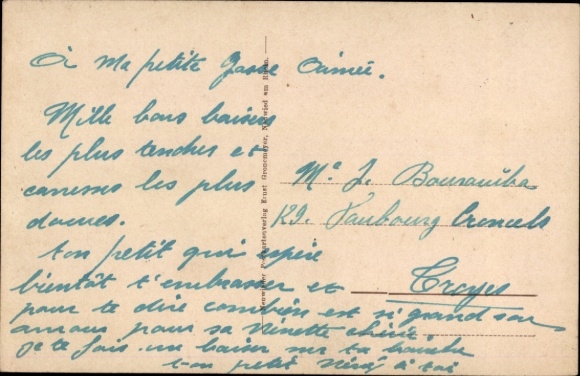 À ma petite Aimée.
Mille bons baisers
les plus tendres et
caresses les plus
douces.
ton petit qui espère
bientôt t'embrasser et
pour te dire combien est si grand son
amour pour sa Ninette chérie
je te fais un baiser sur ta bouche
ton petit à toi
Neuwieder Postkartenverlag Ernst Gronemeyer, Neuwied am Rhein.
Me J. Bouraniba
129. Faubourg Croncels
Troyes